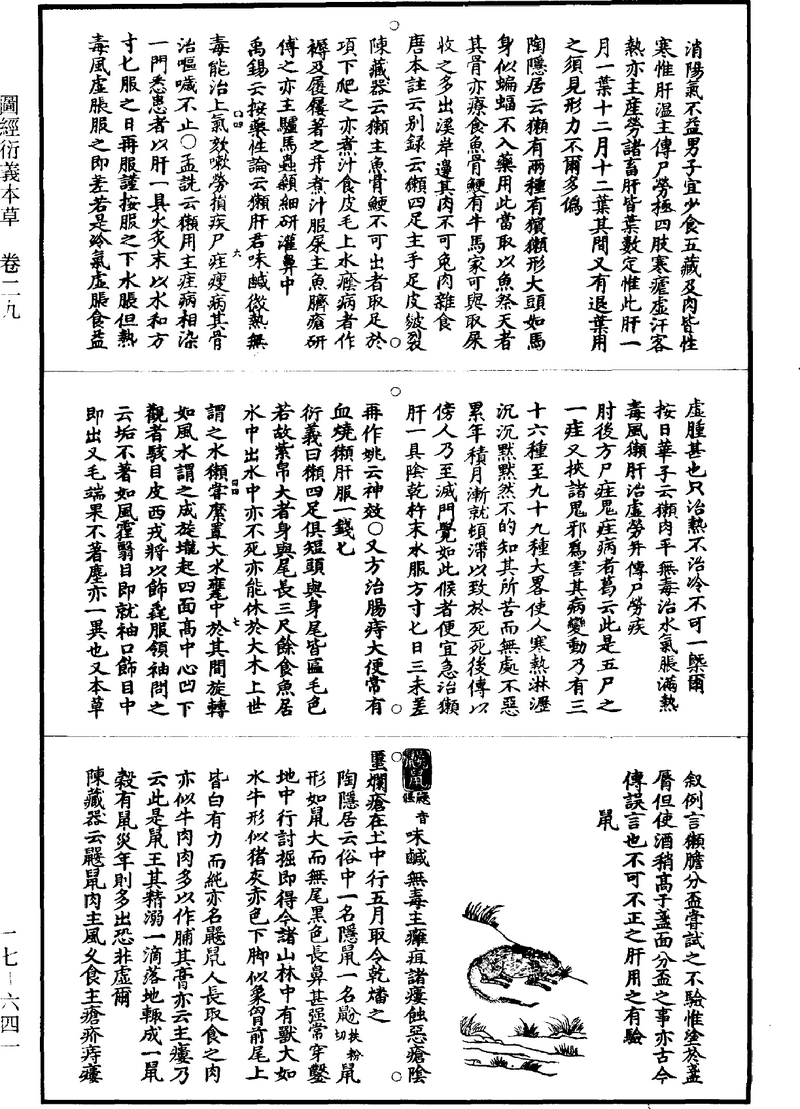 圖經衍義本草　卷二九
一七－六四一
消陽氣不益男子宜少食五藏及肉皆性
寒惟肝溫主傳尸勞極四肢寒瘧虛汗客
熱亦主產勞諸畜肝皆葉數定惟此肝一
月一葉十二月十二葉其間又有退葉用
之須見形力不爾多僞
陶隱居云獺有兩種有獱獺形大頭如馬
身似蝙蝠不入藥用此當取以魚祭天者
其骨亦療食魚骨鯁有牛馬家可與取屎
收之多出溪岸邊其肉不可兔肉雜食
唐本註云别録云獺四足主手足皮皴裂
陳藏器云獺主魚骨鯁不可出者取足於
項下爬之亦煮汁食皮毛上水癊病者作
褥及屨屧著之并煮汁服屎主魚臍瘡研
傅之亦主驢馬蟲顙細研灌鼻中
禹錫云按藥性論云獺肝君味鹹微熱無
毒能治上氣欬嗽勞損疾尸疰瘦病其骨
治嘔噦不止○孟詵云獺用主疰病相染
一門悉患者以肝一具火炙末以水和方
寸匕服之日再服謹按服之下水脹但熱
毒風虛脹服之即差若是冷氣虛脹食益
虛腫甚也只治熱不治冷不可一槩爾
按日華子云獺肉平無毒治水氣脹滿熱
毒風獺肝治虛勞并傳尸勞疾
肘後方尸疰鬼疰病者葛云此是五尸之
一疰又挾諸鬼邪爲害其病變動乃有三
十六種至九十九種大畧使人寒熱淋瀝
沉沉默默然不的知其所苦而無處不惡
累年積月漸就頓滯以致於死死後傳以
傍人乃至滅門覺如此候者便宜急治獺
肝一具陰乾杵末水服方寸匕日三未差
再作姚云神效○又方治腸痔大便常有
血燒獺肝服一錢匕
衍義曰獺四足俱短頭與身尾皆匾毛色
若故紫帛大者身與尾長三尺餘食魚居
水中出水中亦不死亦能休於大木上世
謂之水獺嘗縻置大水甕中於其間旋轉
如風水謂之成旋壠起四面高中心凹下
觀者駭目皮西戎將以飾毳服領袖問之
云垢不著如風霾翳目即就袖口飾目中
即出又毛端果不著塵亦一異也又本草
叙例言獺膽分盃嘗試之不驗惟塗於盞
脣但使酒稍髙子盞面分盃之事亦古今
傳誤言也不可不正之肝用之有驗
鼠
鼴鼠音偃味鹹無毒主癰疽諸瘻蝕惡瘡陰
䘌爛瘡在土中行五月取令乾燔之
陶隱居云俗中一名隱鼠一名鼢扶粉切鼠
形如鼠大而無尾黑色長鼻甚强常穿鑿
地中行討掘即得今諸山林中有獸大如
水牛形似猪灰赤色下脚似象胷前尾上
皆白有力而純亦名鼴鼠人長取食之肉
亦似牛肉肉多以作脯其膏亦云主瘻乃
云此是鼠王其精溺一滴落地輒成一鼠
榖有鼠災年則多出恐非虛爾
陳藏器云鼴鼠肉主風久食主瘡疥痔瘻